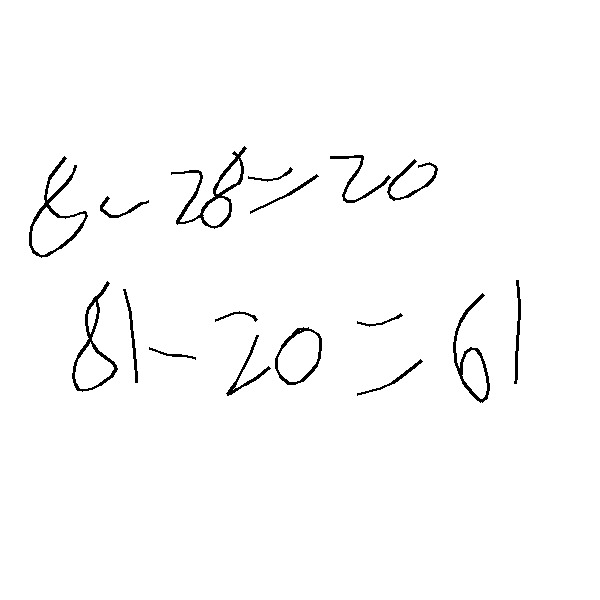 8-28=20
81-20=61